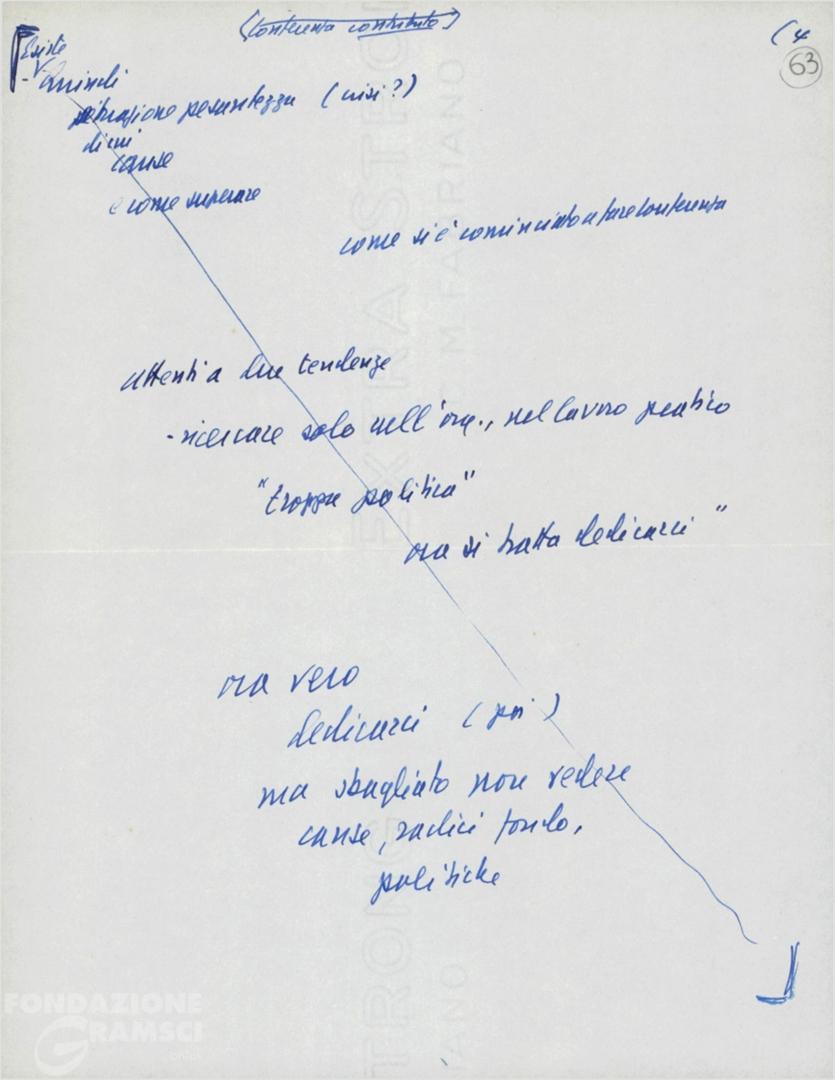 (Conferenza contributo)
(4
63
Esiste
Quindi
situazione pesantezza (crisi?)
di cui
cause
e come superare
come si è cominciato a fare conferenza
attenti a due tendenze
- ricercare solo nell'org., nel lavoro pratico
"troppa politica"
ora si tratta dedicarci"
ora vero
dedicarci (poi)
ma sbagliato non vedere
cause, radici fondo,
politiche
FONDAZIONE
GRAMSCI
EXTRA STRONG
M. FABRIANO